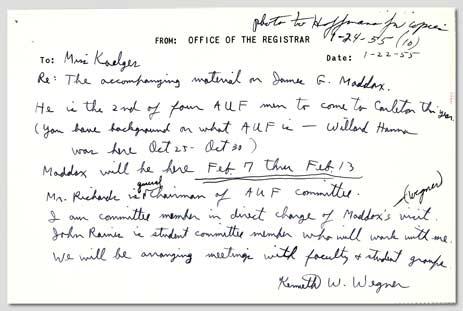 photo to Hoffman for copies
1-24-55 (10)
FROM: OFFICE OF THE REGISTRAR
To: Miss Kaelges Date: 1-22-55
Re: The accompanying material on James G. Maddox.
He is the 2nd of four AUF men to come to Carleton this year.
(You have background on what AUF is — Willard Hanna
was here Oct 25 - Oct 30)
Maddox will be here Feb. 7 thru Feb. 13
Mr. Richards is general chairman of AUF committee.
(Wegner)
I am committee member in direct charge of Maddox's visit.
John Rainie is student committee member who will work with me.
We will be arranging meetings with faculty & student groups.
Kenneth W. Wegner